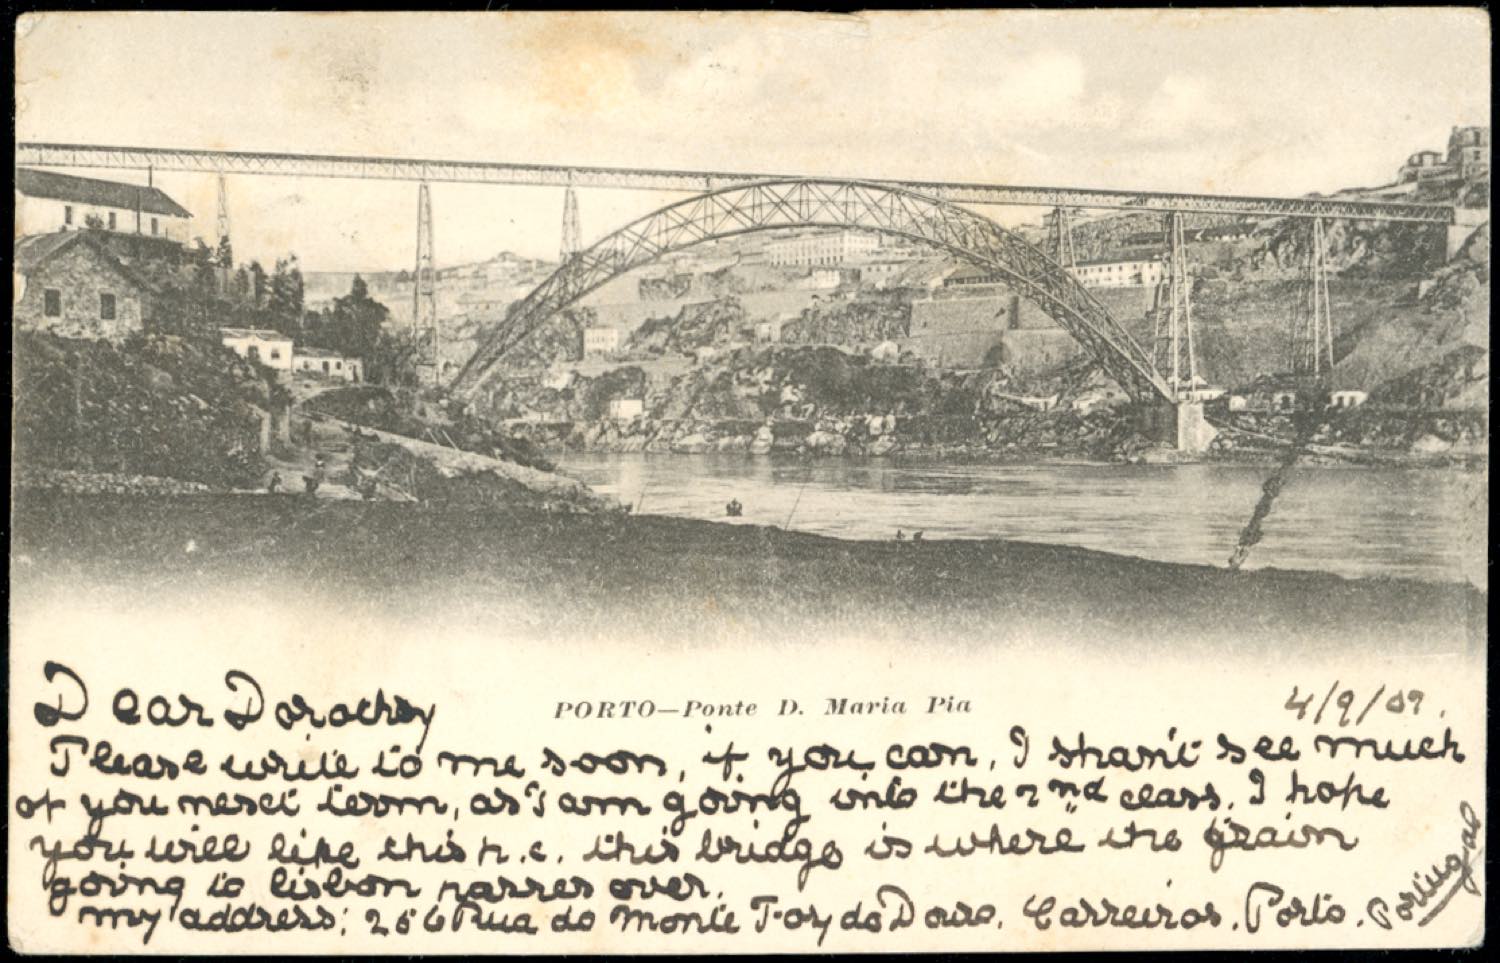 Dear Dorothy
PORTO—Ponte D. Maria Pia
4/9/09.
Please write to me soon, if you can, I shan't see much
of you next term, as I am going into the 2nd class. I hope
you will like this p.c. this bridge is where the train
going to lisbon passes over.
my address: 256 Rua do Monte Foz do Douro. Carreiros. Porto. Portugal